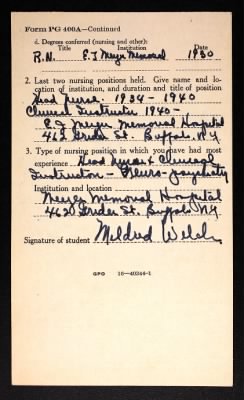 Form PG 400A—Continued
d. Degrees conferred (nursing and other):
Title Institution Date
R.N. E. J Meyer Memorial 1930
2. Last two nursing positions held. Give name and lo-
cation of institution, and duration and title of position
Head Nurse. 1934 - 1940
Clinical Instructor 1940-
E. J. Meyer Memorial Hospital
462 Grider St. Buffalo. N.Y
3. Type of nursing position in which you have had most
experience Head nurse & Clinical
Instructor - Neuro-psychiatry
Institution and location
Meyer Memorial Hospital
462 Grider St. Buffalo N.Y.
Signature of student Mildred Welch
GPO 16—40344-1